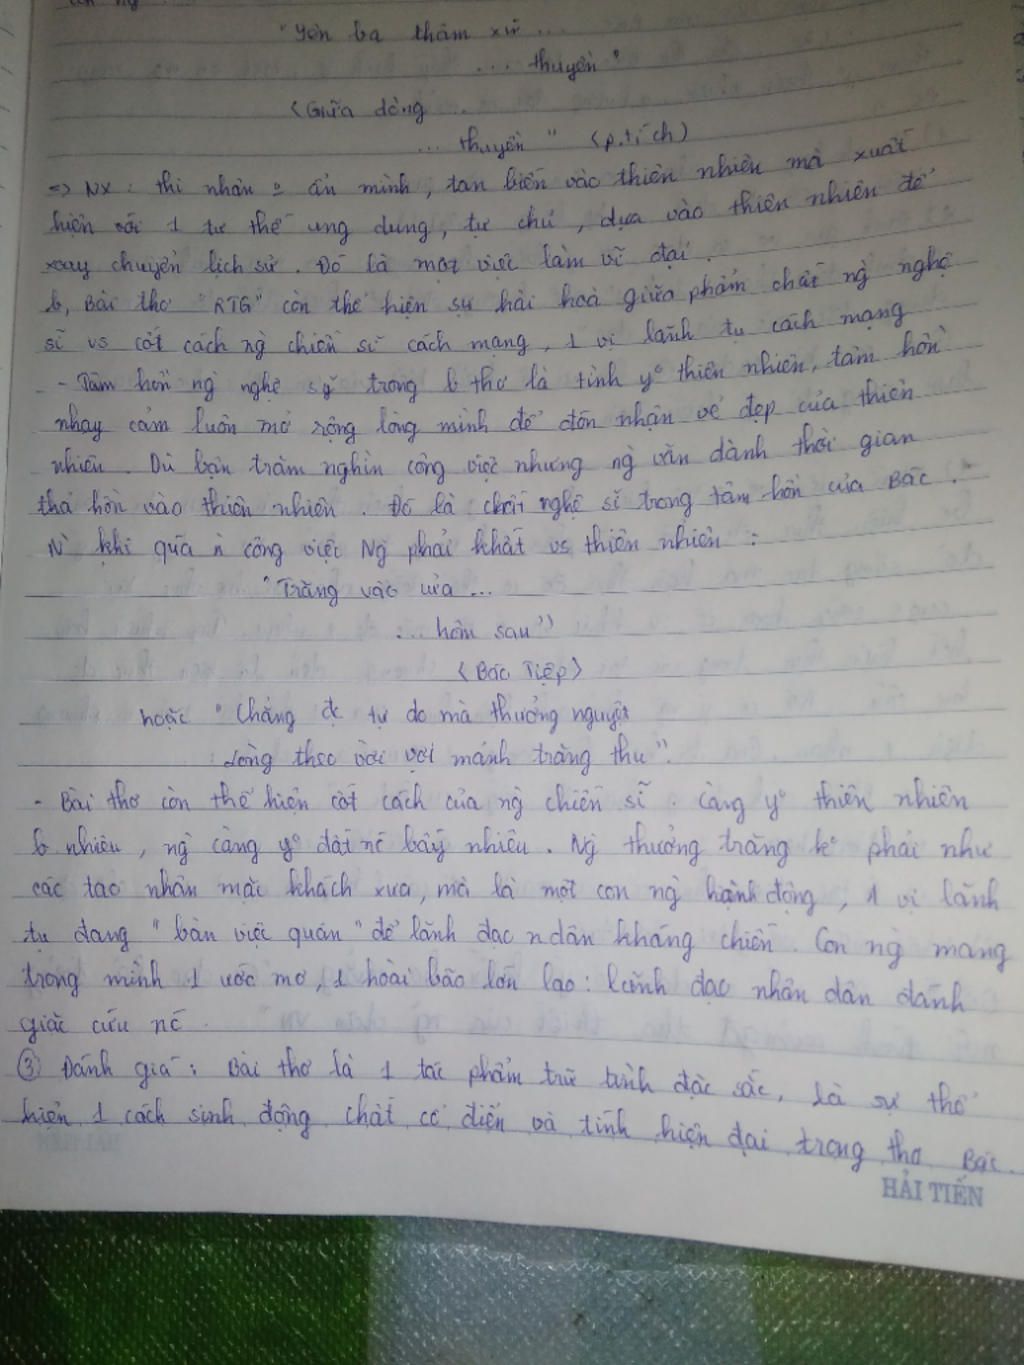 "Yên ba thâm xứ ...
... thuyền"
(Giữa dòng
... thuyền" (p.tích)
=> NX: thi nhân = ẩn mình, tan biến vào thiên nhiên mà xuất
hiện với 1 tư thế ung dung, tự chủ, dựa vào thiên nhiên để
xoay chuyển lịch sử. Đó là một việc làm vĩ đại.
b, Bài thơ "RTG" còn thể hiện sự hài hoà giữa phẩm chất ng̀ nghệ
sĩ vs cốt cách ng̀ chiến sĩ cách mạng, 1 vị lãnh tụ cách mạng
- Tâm hồn ng̀ nghệ sỹ trong b thơ là tình y° thiên nhiên, tâm hồn
nhạy cảm luôn mở rộng lòng mình để đón nhận vẻ đẹp của thiên
nhiên. Dù bận trăm nghìn công việc nhưng ng̀ vẫn dành thời gian
thả hồn vào thiên nhiên. Đó là chất nghệ sĩ trong tâm hồn của Bác.
N~ khi quá n` công việc Ng̀ phải khất vs thiên nhiên:
"Trăng vào cửa ...
... hôm sau"
(Báo Tiệp)
hoặc "Chẳng đc tự do mà thưởng nguyệt
Lòng theo vời vợi mảnh trăng thu".
- Bài thơ còn thể hiện cốt cách của ng̀ chiến sĩ. Càng y° thiên nhiên
b nhiêu, ng̀ càng y° đất nc bấy nhiêu. Ng̀ thưởng trăng k° phải như
các tao nhân mặc khách xưa, mà là một con ng̀ hành động, 1 vị lãnh
tụ đang "bàn việc quân" để lãnh đạo ndân kháng chiến. Con ng̀ mang
trong mình 1 ước mơ, 1 hoài bão lớn lao: lãnh đạo nhân dân đánh
giặc cứu nc.
③ Đánh giá: Bài thơ là 1 tác phẩm trữ tình đặc sắc, là sự thể
hiện 1 cách sinh động chất cổ điển và tính hiện đại trong thơ Bác.
HẢI TIẾN